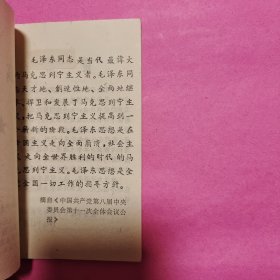 毛泽东同志是当代最偉大
的马克思列宁主义者。毛泽东同
志天才地、創造性地、全面地継
承、捍卫和发展了马克思列宁主
义，把马克思列宁主义提高到一
个崭新的阶段。毛泽东思想是在
帝国主义走向全面崩溃，社会主
义走向全世界胜利的时代的马
克思列宁主义。毛泽东思想是全
党全国一切工作的指导方針。
摘自《中国共产党第八届中央
委員会第十一次全体会议公
报》